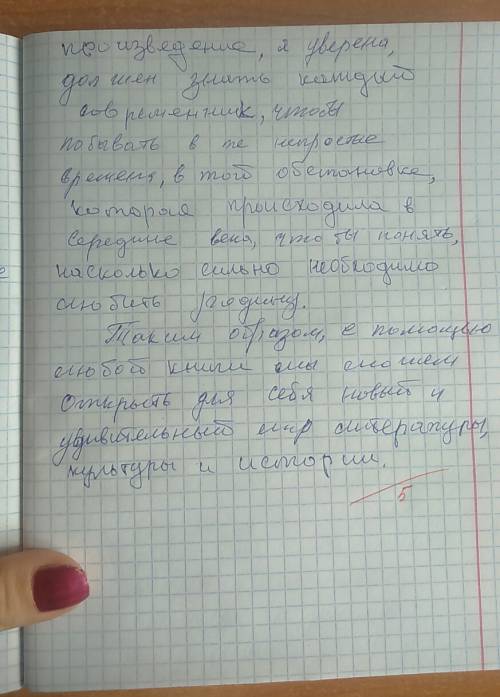 произведение, я уверена,
должен знать каждый
современник, чтобы
побывать в те непростые
времена, в той обстановке,
которая происходила в
середине века, что бы понять,
насколько сильно необходимо
любить Родину.
Таким образом, с помощью
любой книги мы можем
открыть для себя новый и
удивительный мир литературы,
культуры и истории.
5